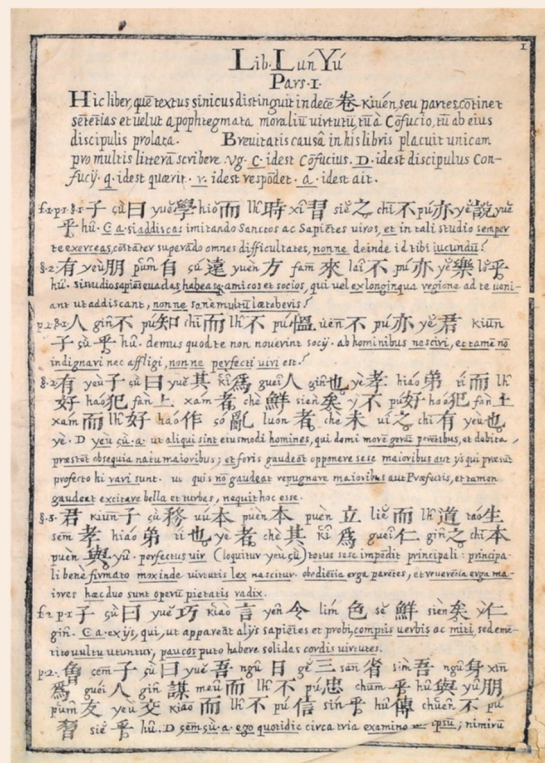 1
Lib. Lún Yú
Pars. 1.
Hic liber, quē textus sinicus distinguit in decē 卷 kiuén, seu partes, cōtinet
sētētias et velut apophtegmata moraliū virtutū, tū a Cōfucio, tū ab eius
discipulis prolata. Brevitatis causâ in his libris placuit unicam
pro multis litterā scribere. Vg. C. idest Cōfucius. D. idest discipulus Con-
fucij. q. idest quærit. r. idest respōdet. a. idest ait.
f.1. p.1. §.1. 子 çù 曰 yuě 學 hiǒ 而 lh̑ 時 xî 習 siě 之 chi 不 pú 亦 yě 說 yuě
乎 hū. C. a. si addiscas imitando Sanctos ac Sapiētes viros, et in tali studio semper
te exerceas, cōstāter superādo omnes difficultates, nonne deinde id tibi iucundū?
§.2. 有 yeù 朋 pûm 自 çú 遠 yuèn 方 fam 來 laî 不 pú 亦 yě 樂 lě 乎
hū. si studio sapiēs evadas, habeasq; amicos et socios, qui vel ex longinqua regione ad te veni-
ant ut addiscant, nonne sanè multū lætaberis?
p.2. §.1. 人 gîn 不 pú 知 chi 而 lh̑ 不 pú 慍 úen 不 pú 亦 yě 君 kiun
子 çù 乎 hū. demus quod te non noverint socij. ab hominibus nesciri, et tamē nō
indignari nec affligi, nonne perfecti viri est?
§.2. 有 yeù 子 çù 曰 yuě 其 kî 為 gueî 人 gîn 也 yè 孝 hiáo 弟 tí 而 lh̑
好 háo 犯 fán 上 xám 者 chè 鮮 sièn 矣 y̌ 不 pú 好 háo 犯 fán 上
xám 而 lh̑ 好 háo 作 só 亂 luón 者 chè 未 ví 之 chi 有 yeù 也
yè. D yeù çù. a. ut aliqui sint eiusmodi homines, qui domi morē gerāt parētibus, et debita
præstēt obsequia natu maioribus; et foris gaudeāt opponere sese maioribus aut ijs qui præsūt
profecto hi rari sunt. ut qui nō gaudeat repugnare maioribus aut Præfectis, et tamen
gaudeat excitare bella et turbas, nequit hoc esse.
§.3. 君 kiun 子 çù 務 vú 本 puèn 本 puèn 立 liě 而 lh̑ 道 táo 生
sem 孝 hiáo 弟 tí 也 yè 者 chè 其 kî 為 gueî 仁 gîn 之 chi 本
puèn 與 yû. perfectus vir (loquitur yeù çù) totus sese impēdit principali: principa-
li benè firmato mox inde virtutis lex nascitur. obediētia erga parētes, et reverētia erga ma-
iores hæc duo sunt operū pietatis radix.
f.2. p.1. 子 çù 曰 yuě 巧 kiào 言 yên 令 lím 色 sě 鮮 sièn 矣 y̌ 仁
gîn. C. a. ex ijs, qui, ut appareāt alijs sapiētes et probi, comptis verbis ac miti sed emē-
tito vultu utuntur, paucos puto habere solidas cordis virtutes.
p.2. 曾 cem 子 çù 曰 yuě 吾 ngû 日 gě 三 san 省 sìn 吾 ngû 身 xin
為 guéi 人 gîn 謀 meû 而 lh̑ 不 pú 忠 chum 乎 hū 與 yù 朋
pûm 友 yeù 交 kiao 而 lh̑ 不 pú 信 sín 乎 hū 傳 chuên 不 pú
習 siě 乎 hū. D. çem çù. a. ego quotidie circa tria examino me ipsū; nimirū